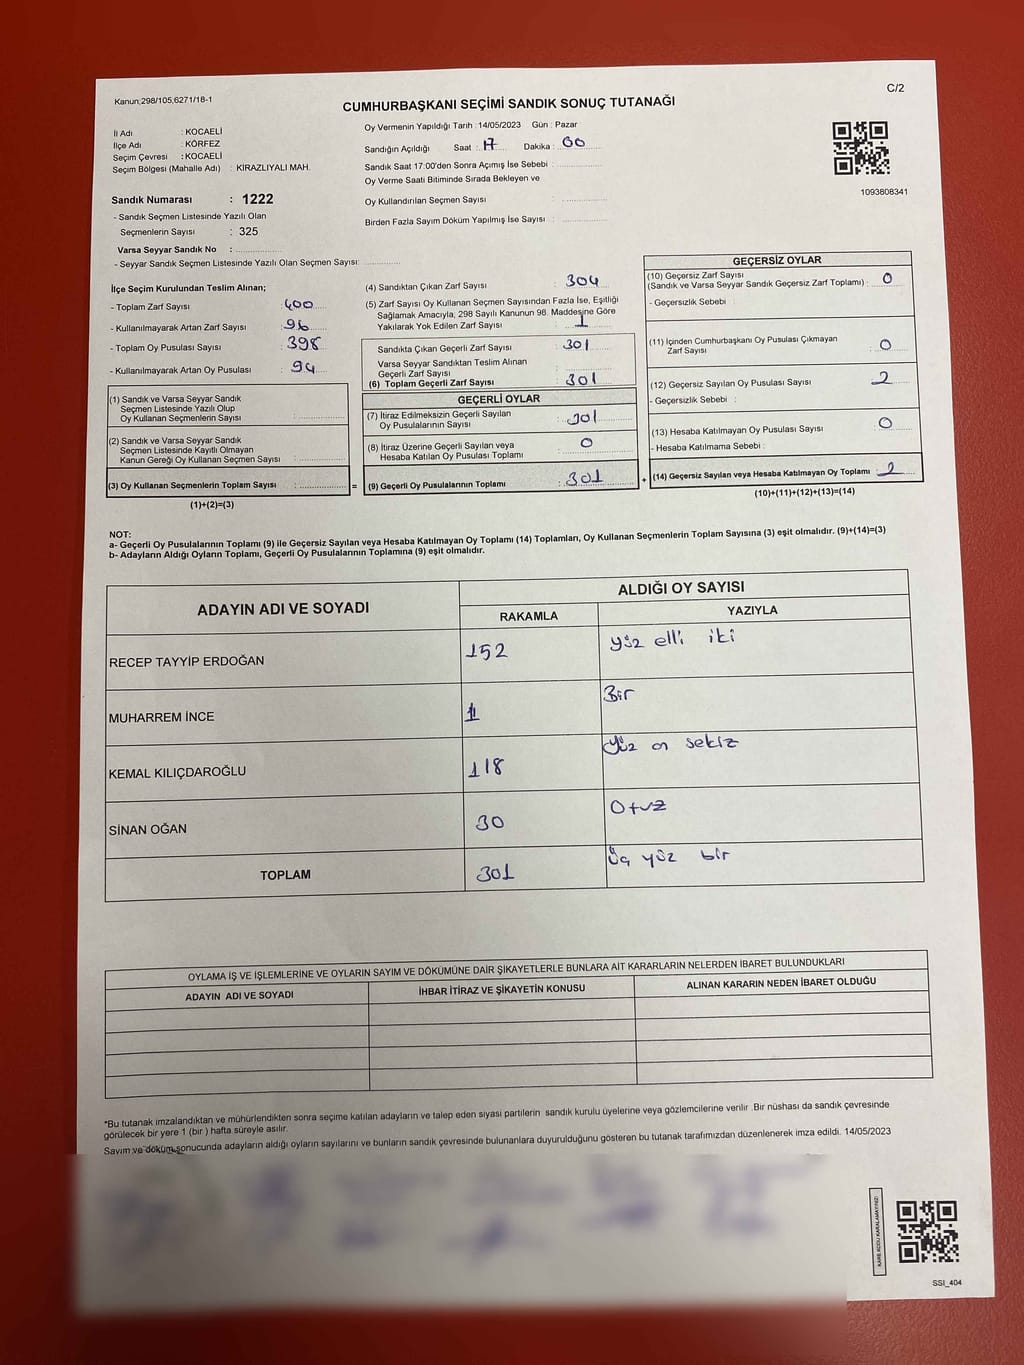 Kanun;298/105,6271/18-1
C/2
CUMHURBAŞKANI SEÇİMİ SANDIK SONUÇ TUTANAĞI
İl Adı : KOCAELİ
İlçe Adı : KÖRFEZ
Seçim Çevresi : KOCAELİ
Seçim Bölgesi (Mahalle Adı) : KİRAZLIYALI MAH.
Oy Vermenin Yapıldığı Tarih : 14/05/2023 Gün : Pazar
Sandığın Açıldığı Saat : 17 Dakika : 00
Sandık Saat 17:00'den Sonra Açımış İse Sebebi :
Oy Verme Saati Bitiminde Sırada Bekleyen ve
Oy Kullandırılan Seçmen Sayısı :
Birden Fazla Sayım Döküm Yapılmış İse Sayısı :
1093808341
Sandık Numarası : 1222
- Sandık Seçmen Listesinde Yazılı Olan
Seçmenlerin Sayısı : 325
Varsa Seyyar Sandık No :
- Seyyar Sandık Seçmen Listesinde Yazılı Olan Seçmen Sayısı:
İlçe Seçim Kurulundan Teslim Alınan;
- Toplam Zarf Sayısı : 400
- Kullanılmayarak Artan Zarf Sayısı : 96
- Toplam Oy Pusulası Sayısı : 398
- Kullanılmayarak Artan Oy Pusulası : 94
(1) Sandık ve Varsa Seyyar Sandık
Seçmen Listesinde Yazılı Olup
Oy Kullanan Seçmenlerin Sayısı :
(2) Sandık ve Varsa Seyyar Sandık
Seçmen Listesinde Kayıtlı Olmayan
Kanun Gereği Oy Kullanan Seçmen Sayısı :
(3) Oy Kullanan Seçmenlerin Toplam Sayısı :
(1)+(2)=(3)
=
(4) Sandıktan Çıkan Zarf Sayısı : 304
(5) Zarf Sayısı Oy Kullanan Seçmen Sayısından Fazla İse, Eşitliği
Sağlamak Amacıyla, 298 Sayılı Kanunun 98. Maddesine Göre
Yakılarak Yok Edilen Zarf Sayısı : 1
Sandıkta Çıkan Geçerli Zarf Sayısı : 301
Varsa Seyyar Sandıktan Teslim Alınan
Geçerli Zarf Sayısı :
(6) Toplam Geçerli Zarf Sayısı : 301
GEÇERLİ OYLAR
(7) İtiraz Edilmeksizin Geçerli Sayılan
Oy Pusulalarının Sayısı : 301
(8) İtiraz Üzerine Geçerli Sayılan veya
Hesaba Katılan Oy Pusulası Toplamı : 0
(9) Geçerli Oy Pusulalarının Toplamı : 301
+
GEÇERSİZ OYLAR
(10) Geçersiz Zarf Sayısı
(Sandık ve Varsa Seyyar Sandık Geçersiz Zarf Toplamı) : 0
- Geçersizlik Sebebi :
(11) İçinden Cumhurbaşkanı Oy Pusulası Çıkmayan
Zarf Sayısı : 0
(12) Geçersiz Sayılan Oy Pusulası Sayısı : 2
- Geçersizlik Sebebi :
(13) Hesaba Katılmayan Oy Pusulası Sayısı : 0
- Hesaba Katılmama Sebebi :
(14) Geçersiz Sayılan veya Hesaba Katılmayan Oy Toplamı : 2
(10)+(11)+(12)+(13)=(14)
NOT:
a- Geçerli Oy Pusulalarının Toplamı (9) ile Geçersiz Sayılan veya Hesaba Katılmayan Oy Toplamı (14) Toplamları, Oy Kullanan Seçmenlerin Toplam Sayısına (3) eşit olmalıdır. (9)+(14)=(3)
b- Adayların Aldığı Oyların Toplamı, Geçerli Oy Pusulalarının Toplamına (9) eşit olmalıdır.
ADAYIN ADI VE SOYADI
ALDIĞI OY SAYISI
RAKAMLA YAZIYLA
RECEP TAYYİP ERDOĞAN 152 yüz elli iki
MUHARREM İNCE 1 Bir
KEMAL KILIÇDAROĞLU 118 yüz on sekiz
SİNAN OĞAN 30 Otuz
TOPLAM 301 Üç yüz bir
OYLAMA İŞ VE İŞLEMLERİNE VE OYLARIN SAYIM VE DÖKÜMÜNE DAİR ŞİKAYETLERLE BUNLARA AİT KARARLARIN NELERDEN İBARET BULUNDUKLARI
ADAYIN ADI VE SOYADI İHBAR İTİRAZ VE ŞİKAYETİN KONUSU ALINAN KARARIN NEDEN İBARET OLDUĞU
*Bu tutanak imzalandıktan ve mühürlendikten sonra seçime katılan adayların ve talep eden siyasi partilerin sandık kurulu üyelerine veya gözlemcilerine verilir .Bir nüshası da sandık çevresinde
görülecek bir yere 1 (bir ) hafta süreyle asılır.
Sayım ve döküm sonucunda adayların aldığı oyların sayılarını ve bunların sandık çevresinde bulunanlara duyurulduğunu gösteren bu tutanak tarafımızdan düzenlenerek imza edildi. 14/05/2023
KARE KODU KARALAMAYINIZ!
SSI_404